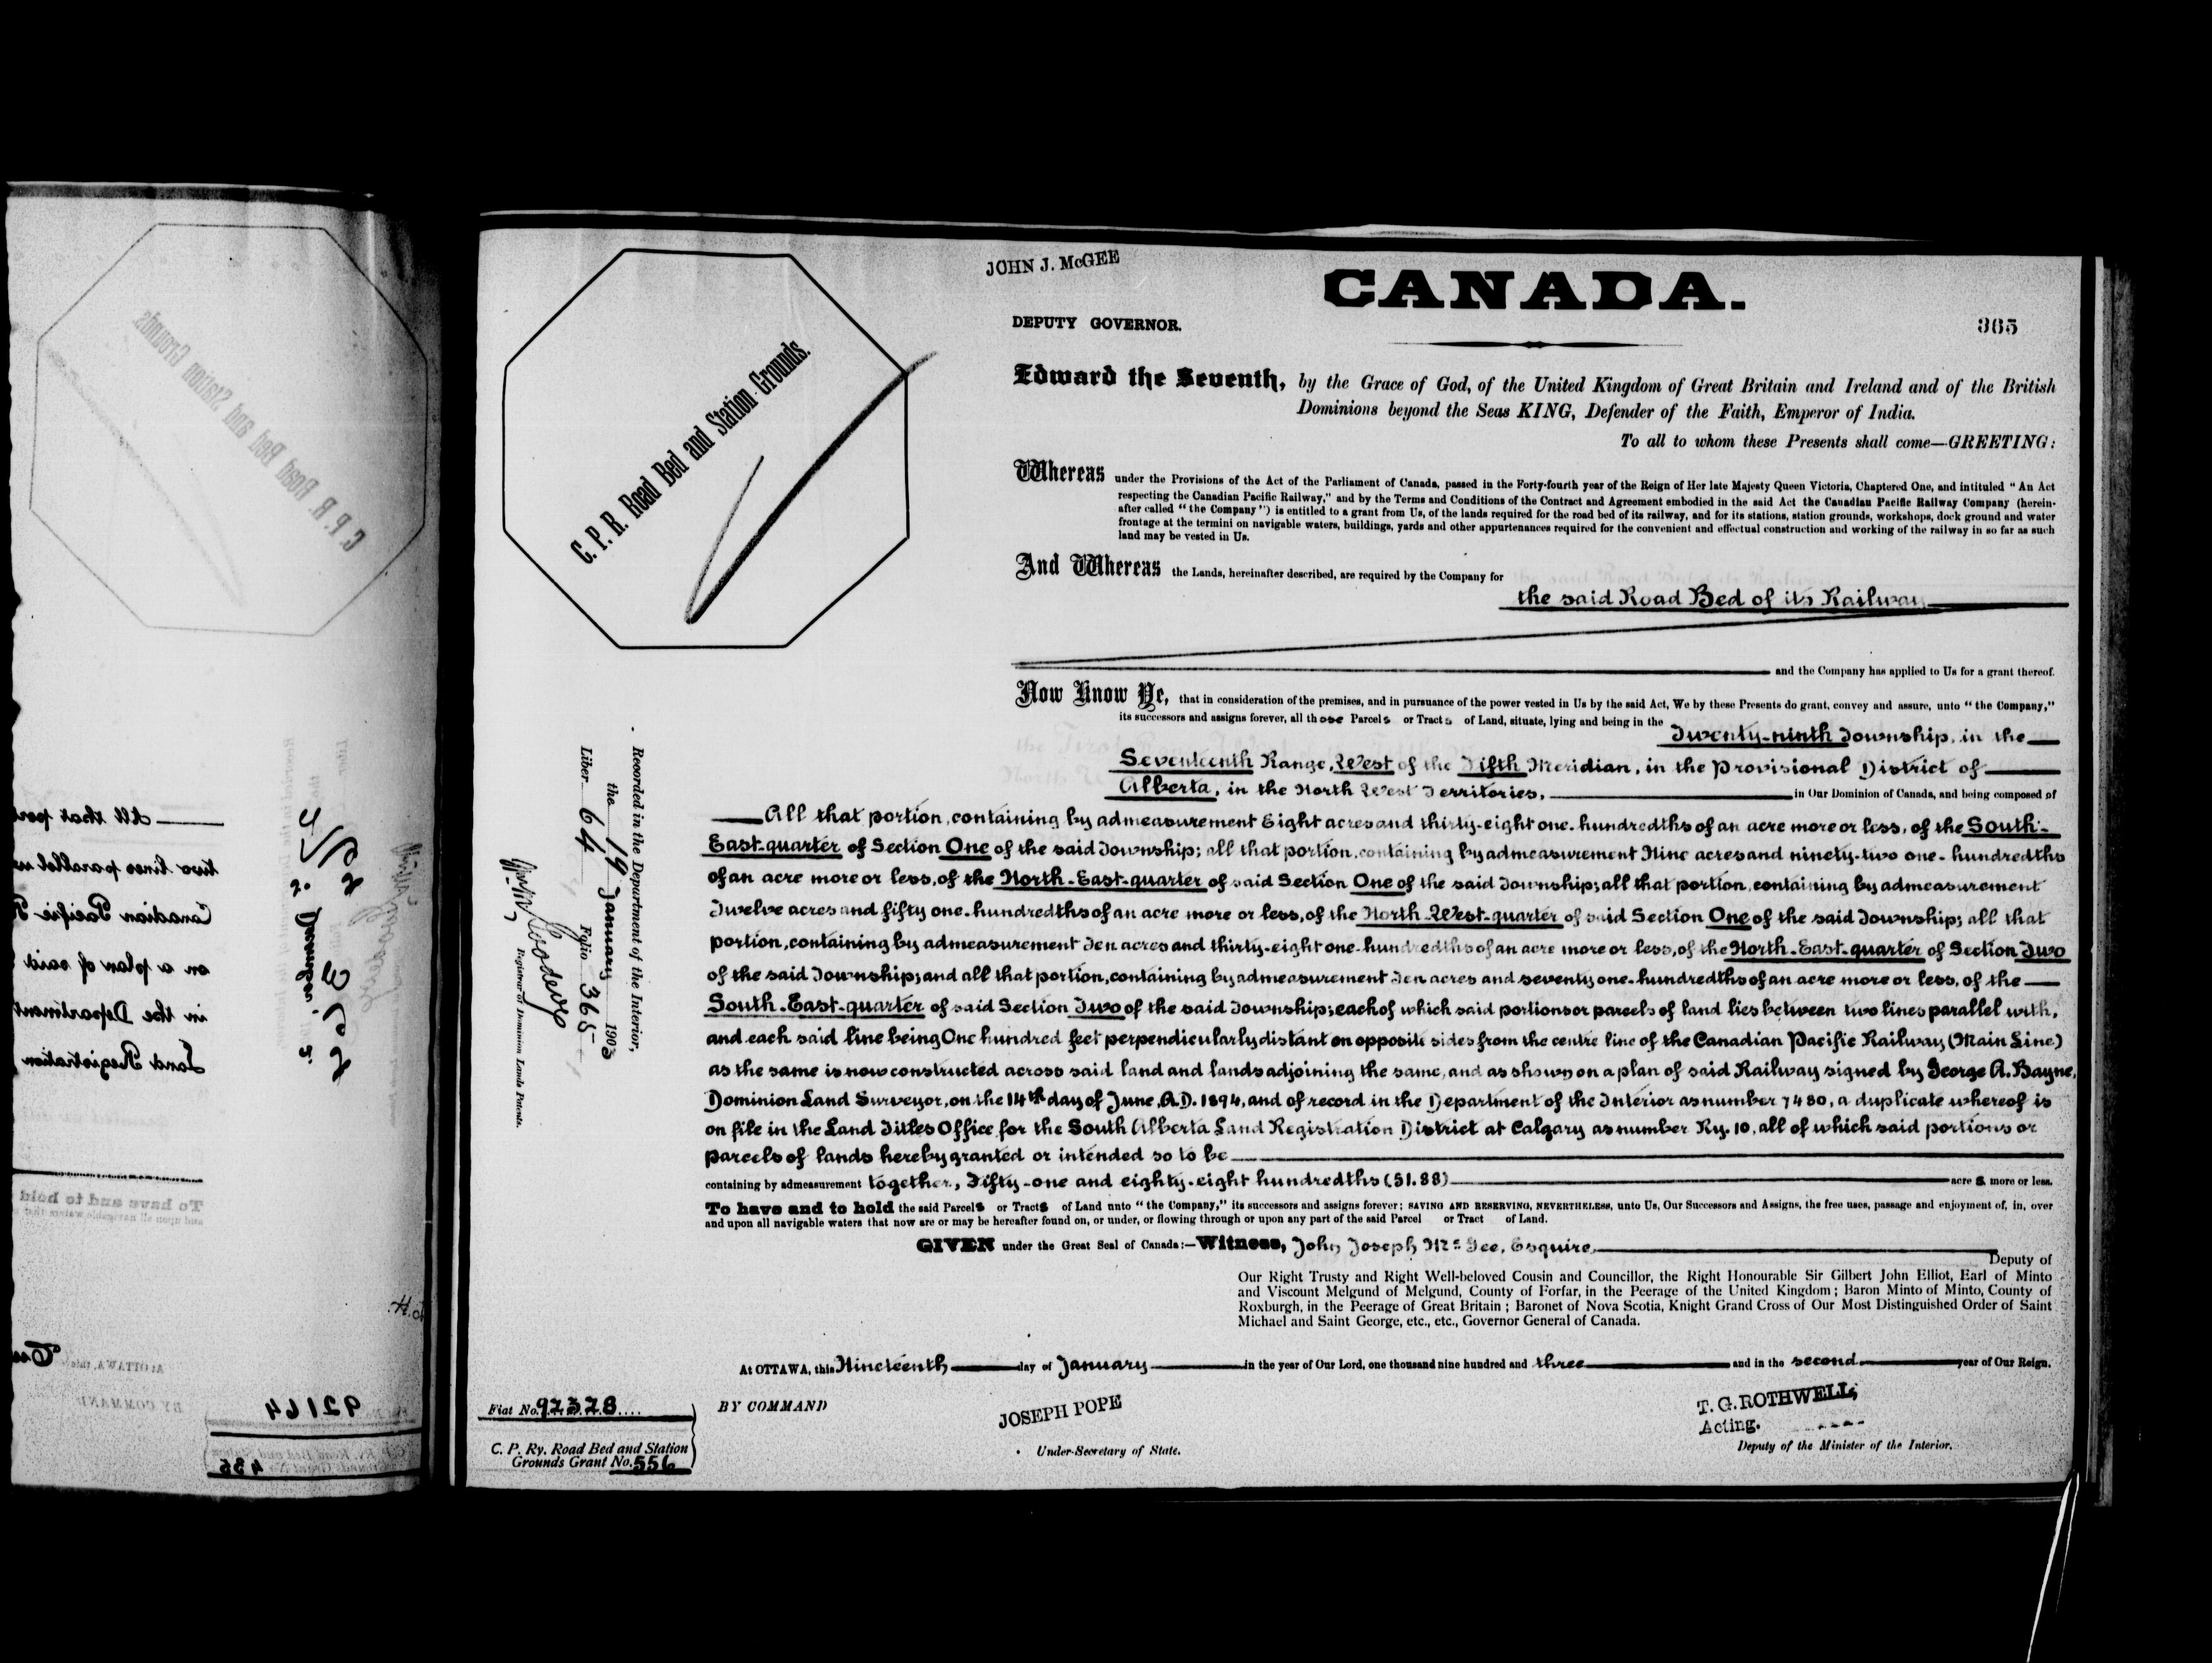 JOHN J. McGEE
CANADA.
DEPUTY GOVERNOR.
365
C. P. R. Road Bed and Station Grounds.
Edward the Seventh, by the Grace of God, of the United Kingdom of Great Britain and Ireland and of the British
Dominions beyond the Seas KING, Defender of the Faith, Emperor of India.
To all to whom these Presents shall come—GREETING:
Whereas under the Provisions of the Act of the Parliament of Canada, passed in the Forty-fourth year of the Reign of Her late Majesty Queen Victoria, Chaptered One, and intituled "An Act
respecting the Canadian Pacific Railway," and by the Terms and Conditions of the Contract and Agreement embodied in the said Act the Canadian Pacific Railway Company (herein-
after called "the Company") is entitled to a grant from Us, of the lands required for the road bed of its railway, and for its stations, station grounds, workshops, dock ground and water
frontage at the termini on navigable waters, buildings, yards and other appurtenances required for the convenient and effectual construction and working of the railway in so far as such
land may be vested in Us.
And Whereas the Lands, hereinafter described, are required by the Company for
the said Road Bed of its Railway
and the Company has applied to Us for a grant thereof.
Now Know Ye, that in consideration of the premises, and in pursuance of the power vested in Us by the said Act, We by these Presents do grant, convey and assure, unto "the Company,"
its successors and assigns forever, all those Parcels or Tracts of Land, situate, lying and being in the
Twenty-ninth Township, in the
Seventeenth Range, West of the Fifth Meridian, in the Provisional District of
Alberta, in the North West Territories, in Our Dominion of Canada, and being composed of
All that portion, containing by admeasurement Eight acres and thirty-eight one-hundredths of an acre more or less, of the South-
East-quarter of Section One of the said Township; all that portion, containing by admeasurement Nine acres and ninety-two one-hundredths
of an acre more or less, of the North-East-quarter of said Section One of the said Township; all that portion, containing by admeasurement
Twelve acres and fifty one-hundredths of an acre more or less, of the North-West-quarter of said Section One of the said Township; all that
portion, containing by admeasurement Ten acres and thirty-eight one-hundredths of an acre more or less, of the North-East-quarter of Section Two
of the said Township; and all that portion, containing by admeasurement Ten acres and seventy one-hundredths of an acre more or less, of the
South-East-quarter of said Section Two of the said Township; each of which said portions or parcels of land lies between two lines parallel with,
and each said line being One hundred feet perpendicularly distant on opposite sides from the centre line of the Canadian Pacific Railway (Main Line)
as the same is now constructed across said land and lands adjoining the same, and as shown on a plan of said Railway signed by George A. Bayne,
Dominion Land Surveyor, on the 14th day of June, A.D. 1894, and of record in the Department of the Interior as number 7480, a duplicate whereof is
on file in the Land Titles Office for the South Alberta Land Registration District at Calgary as number Ry. 10, all of which said portions or
parcels of lands hereby granted or intended so to be
containing by admeasurement together, Fifty-one and eighty-eight hundredths (51.88) acres more or less.
To have and to hold the said Parcels or Tracts of Land unto "the Company," its successors and assigns forever; SAVING AND RESERVING, NEVERTHELESS, unto Us, Our Successors and Assigns, the free uses, passage and enjoyment of, in, over
and upon all navigable waters that now are or may be hereafter found on, or under, or flowing through or upon any part of the said Parcel or Tract of Land.
GIVEN under the Great Seal of Canada:—Witness, John Joseph McGee, Esquire,
Deputy of
Our Right Trusty and Right Well-beloved Cousin and Councillor, the Right Honourable Sir Gilbert John Elliot, Earl of Minto
and Viscount Melgund of Melgund, County of Forfar, in the Peerage of the United Kingdom; Baron Minto of Minto, County of
Roxburgh, in the Peerage of Great Britain; Baronet of Nova Scotia, Knight Grand Cross of Our Most Distinguished Order of Saint
Michael and Saint George, etc., etc., Governor General of Canada.
At OTTAWA, this Nineteenth day of January in the year of Our Lord, one thousand nine hundred and three and in the second year of Our Reign.
BY COMMAND
JOSEPH POPE
Under-Secretary of State.
T. G. ROTHWELL,
Acting.
Deputy of the Minister of the Interior.
Recorded in the Department of the Interior,
the 19 January 1903
Liber 64 Folio 365
Registrar of Dominion Lands Patents.
Fiat No. 92328
C. P. Ry. Road Bed and Station
Grounds Grant No. 556
C. P. R. Road Bed and Station Grounds
All that port
two lines parallel w
Canadian Pacific R
on a plan of said
in the Department
Land Registration
To have and to hold
At OTTAWA, this
BY COMMAND
92164